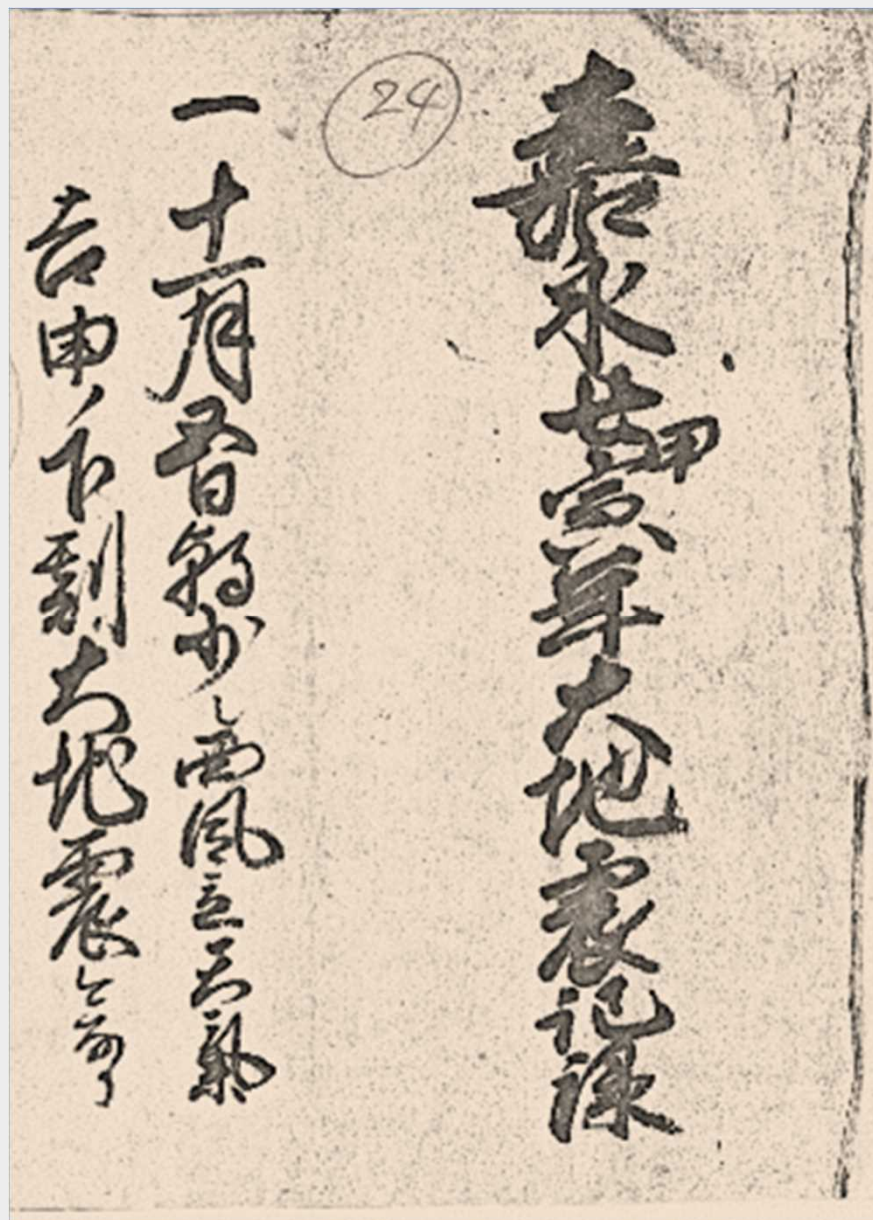 嘉永七甲寅年大地震記録
24
一十一月五日朝少し西風立天氣
吉申ノ下刻大地震